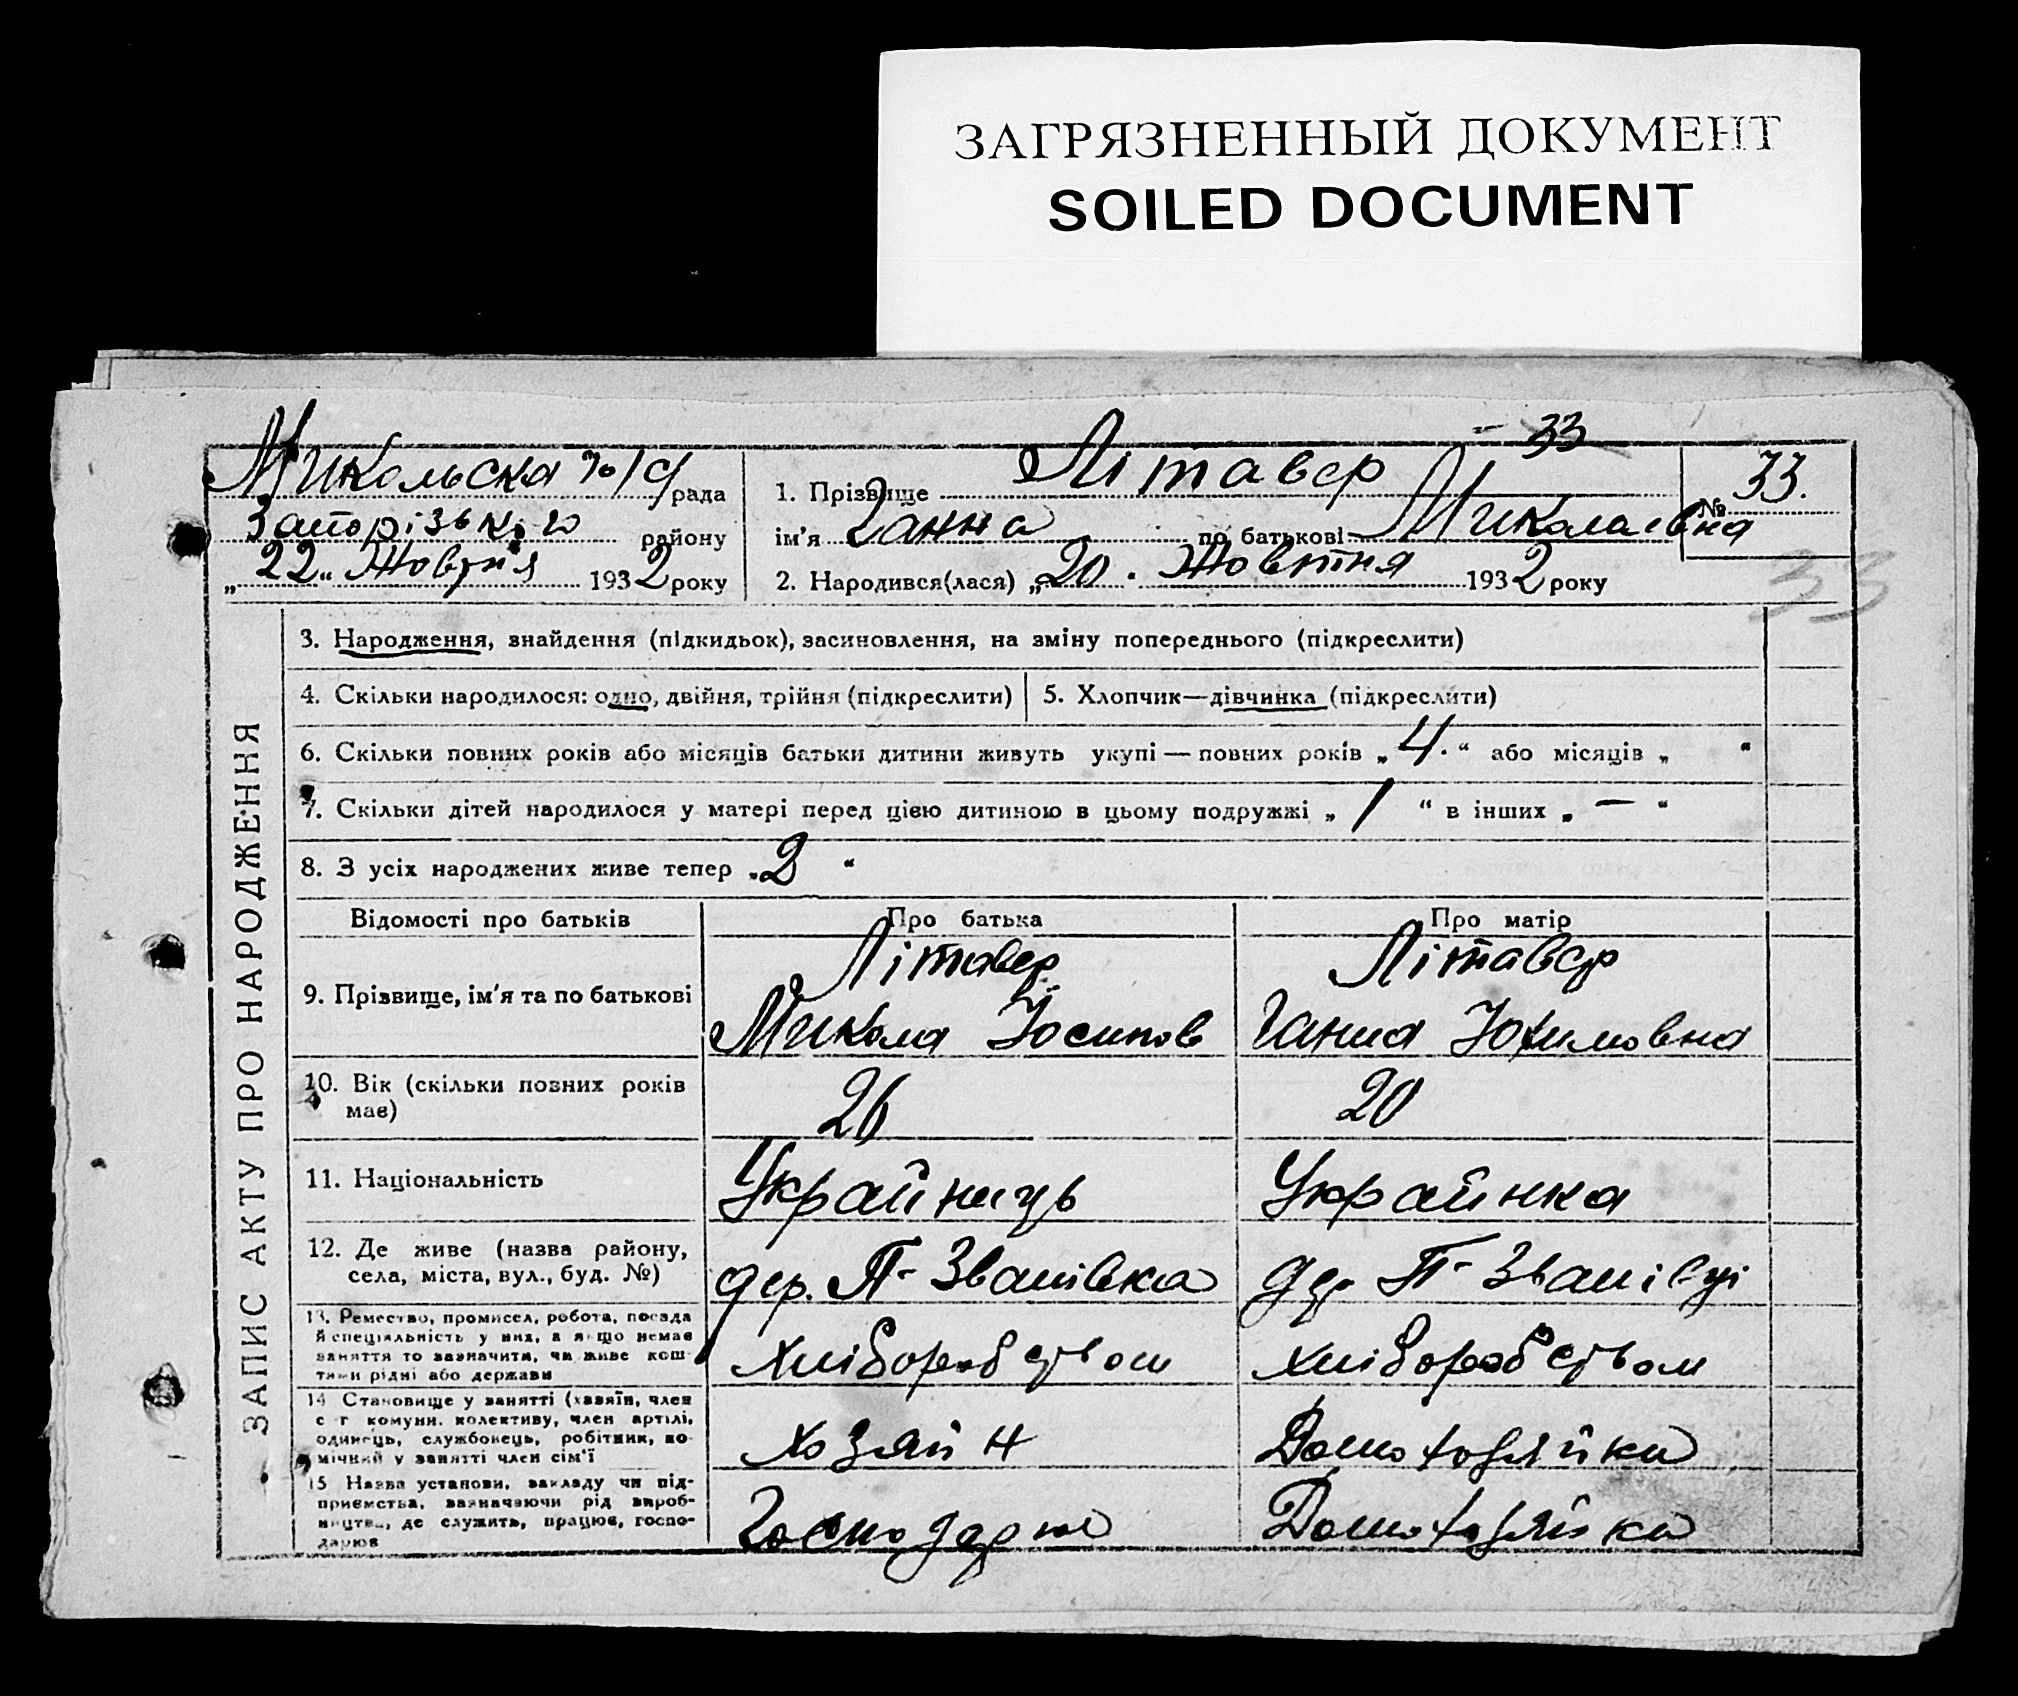 ЗАГРЯЗНЕННЫЙ ДОКУМЕНТ
SOILED DOCUMENT
33
Микольска рада
Запорізького району
„22“ Жовтня 1932 року
1. Прізвище Літавер
ім'я Ганна по батькові Миколаівна
2. Народився(лася) „20. Жовтня 1932 року
№ 33.
33
ЗАПИС АКТУ ПРО НАРОДЖЕННЯ
3. Народження, знайдення (підкидьок), засиновлення, на зміну попереднього (підкреслити)
4. Скільки народилося: одно, двійня, трійня (підкреслити)
5. Хлопчик—дівчинка (підкреслити)
6. Скільки повних років або місяців батьки дитини живуть укупі — повних років „4.“ або місяців „ “
7. Скільки дітей народилося у матері перед цією дитиною в цьому подружжі „1“ в інших „—“
8. З усіх народжених живе тепер „2“
Відомості про батьків
Про батька
Про матір
9. Прізвище, ім'я та по батькові
Літавер
Микола Йосипов
Літавер
Ганна Юхимовна
10. Вік (скільки повних років
має)
26
20
11. Національність
Украйнець
Украйнка
12. Де живе (назва району,
села, міста, вул., буд. №)
дер. П-Званівка
дер П-Званівці
13. Ремество, промисел, робота, посада
й спеціяльність у них, а якщо немає
заняття то зазначити, чи живе кош-
тами рідні або держави
Хліборобством
Хліборобством
14 Становище у занятті (хазяїн, член
с-г комуни, колективу, член артілі,
одинець, службовець, робітник, по-
мічний у занятті член сім'ї
Хозяйн
Домохозяйка
15 Назва установи, закладу чи під-
приємства, зазначаючи рід вироб-
ництва, де служить, працює, госпо-
дарює
Господарює
Домохозяйка